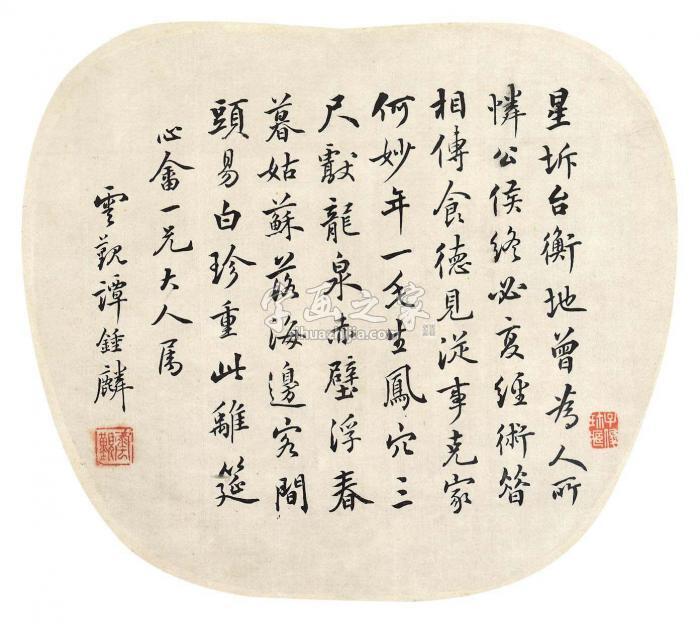 星坼台衡地曾為人所
憐公侯終必复經術
相傳食德見從事克家
何妙年一毛生鳳穴三
尺獻龍泉赤壁浮春
暮姑蘇落海邊客間
頭易白珍重此離筵
心畬一兄大人属
雲覲譚鍾麟
雲覲
字画之家